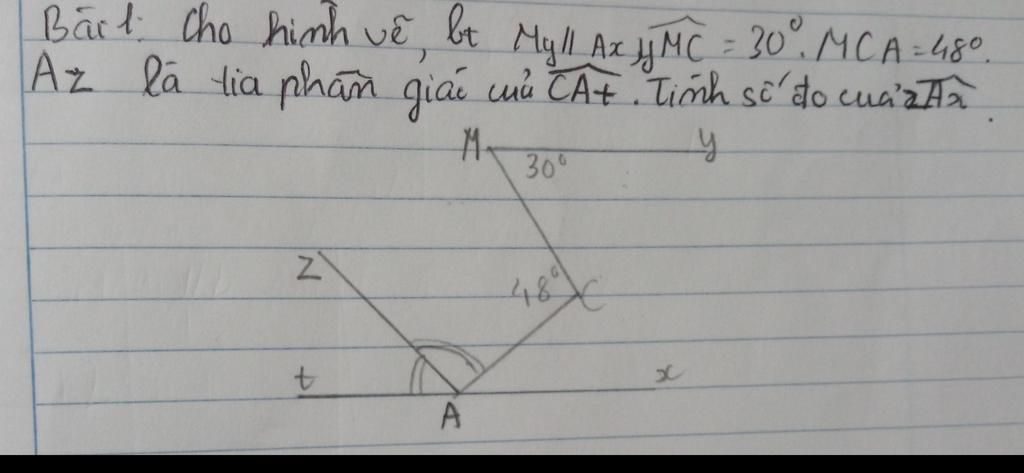 Bài 1: Cho hình vẽ, bt My // Ax yMC = 30°. MCA = 48°.
Az là tia phân giác của CAt. Tính số đo của zAx.
M y
30°
z
48° C
t x
A